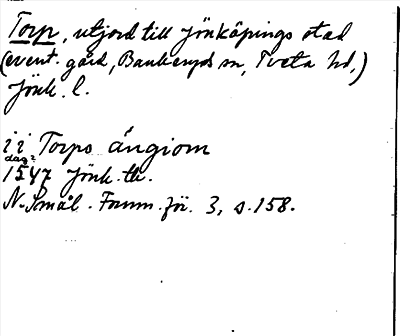 Torp, utjord till Jönköpings stad
(event. gård, Bankeryds sn, Tveta hd,)
Jönk. l.
i i Torps ängiom
1547 Jönk. tb.
N. Smål. Fornm.för. 3, s. 158.